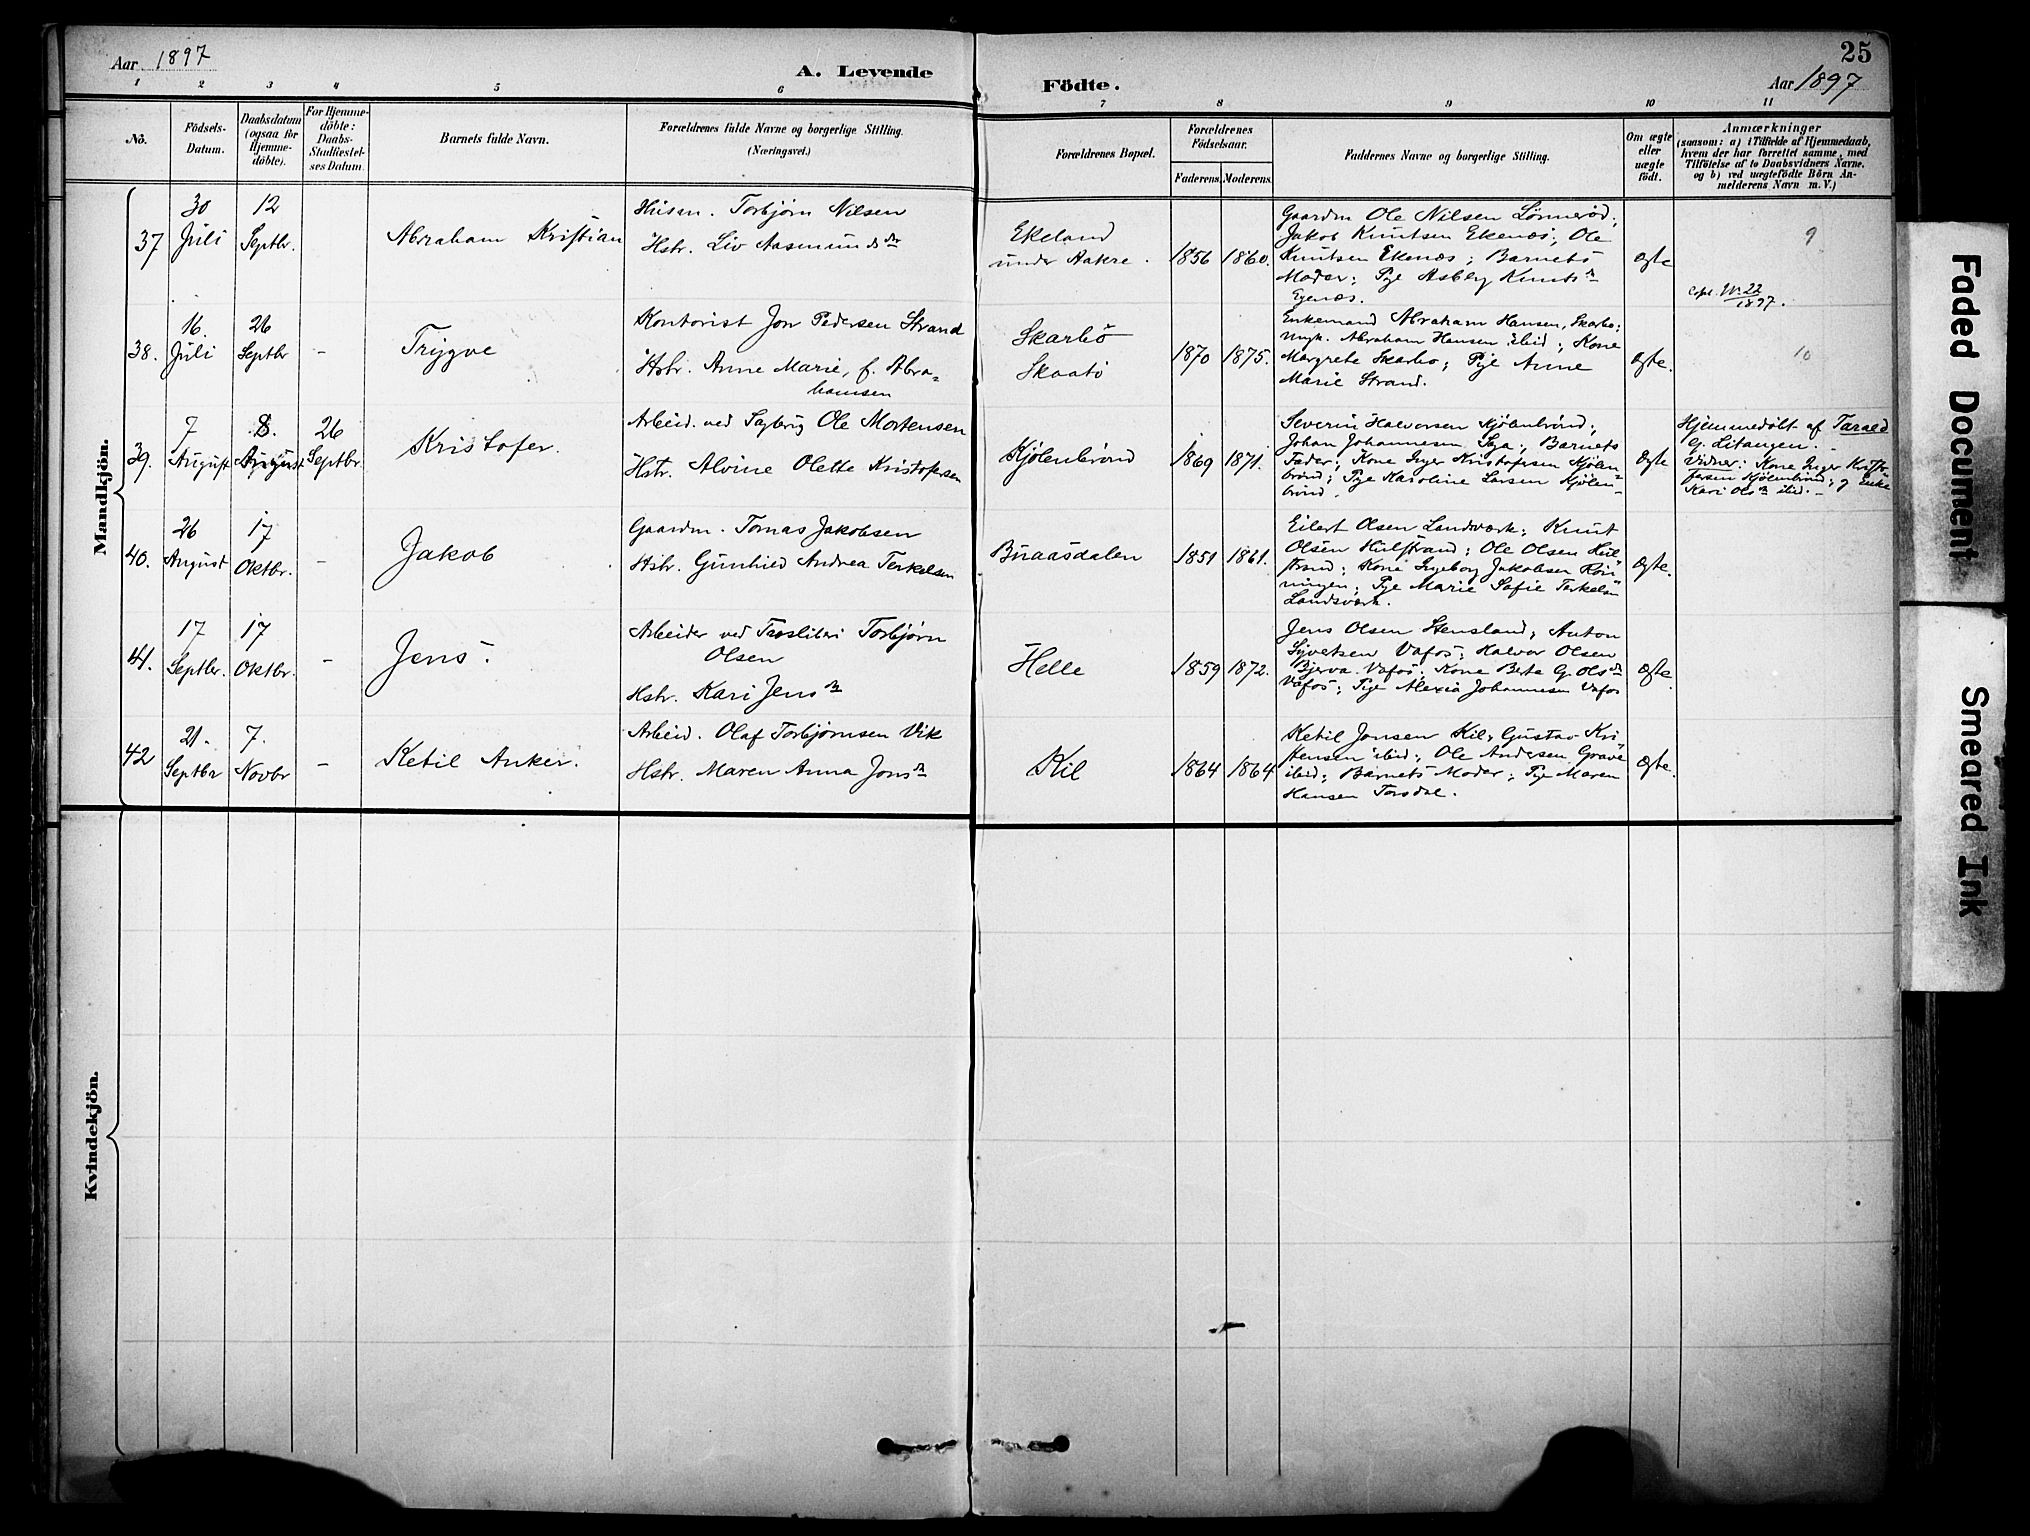 Aar 1897
A. Levende
Födte.
25
Aar 1897
1 2 3 4 5 6 7 8 9 10 11
No.
Födsels-
Datum.
Daabsdatum
(ogsaa for
Hjemme-
döbte).
For Hjemme-
döbte:
Daabs-
Stadfæstel-
ses Datum.
Barnets fulde Navn.
Forældrenes fulde Navne og borgerlige Stilling.
(Næringsvei.)
Forældrenes Bopæl.
Forældrenes
Födselsaar.
Faderens.
Moderens.
Faddernes Navne og borgerlige Stilling.
Om ægte
eller
uægte
födt.
Anmærkninger
(saasom: a) i Tilfælde af Hjemmedaab,
hvem der har forrettet samme, med
Tilföielse af to Daabsvidners Navne,
og b) ved uægtefödte Börn An-
melderens Navn m. V.)
Mandkjön.
37
30
Juli
12
Septbr.
Abraham Kristian
Husm. Torbjørn Nilsen
Hstr. Liv Aasmundsdr
Ekeland
under Aakre.
1856
1860.
Gaardm Ole Nilsen Lönneröd;
Jakob Knutsen Ekenæs; Ole
Knutsen Ekenæs; Barnets
Moder; Pge Asberg Knutsdr
Egenæs.
Ægte
9
1897.
38.
16.
Juli
26
Septbr
-
Trygve
Kontorist Jon Pedersen Strand
Hstr. Anne Marie, f. Abra-
hamsen
Skarbö
Skaatö
1870
1875.
Enkemand Abraham Hansen, Skarbo;
Ungk. Abraham Hansen ibid; Kone
Margrete Skarbo; Pge Anne
Marie Strand.
Ægte.
10
39.
7
August
8.
August
26
Septbr.
Kristofer.
Arbeid. ved Sagbrug Ole Mortensen
Hstr. Alvine Olette Kristofersen
Kjölenbrönd
1869
1871.
Severin Halvorsen Kjölenbrönd;
Johan Johannesen; Barnets
Fader; Kone Inger Kristofersen Kjölen-
brönd; Pge Karoline Larsen Kjölen-
brönd.
Ægte
Hjemmedöbt af Tarald
G. Litangen.
Vidner: Kone Inger Kristo-
fersen Kjölenbrönd; og Enke
Kari Olsdr ibid. -
40.
26
August
17
Oktbr.
-
Jakob
Gaardm. Tomas Jakobsen
Hstr. Gunhild Andrea Terkelsen
Buaasdalen
1851
1861.
Eilert Olsen Landsværk; Knut
Olsen Hulstrand; Ole Olsen Hul-
strand; Kone Ingeborg Jakobsen Röi-
ningen; Pge Marie Sofie Terkelsen
Landsværk.
Ægte.
41.
17
Septbr.
17
Oktbr.
-
Jens.
Arbeider ved Træsliberi Torbjørn
Olsen
Hstr. Kari Jensdr
Helle
1859
1872.
Jens Olsen Stensland; Anton
Syvertsen Vafos; Halvor Olsen
Bjerva. Vafos; Kone Berte G. Olsdr
Vafos; Pge Alexia Johannesen Vafos
Ægte.
42
21.
Septbr
7.
Novbr
-
Ketil Anker.
Arbeid. Olaf Torbjørnsen Vik
Hstr. Maren Anna Jonsdr
Kil
1864
1864
Ketil Jonsen Kil; Gustav Kri-
stensen ibid; Ole Andersen Grave
ibid; Barnets Moder; Pge Maren
Hansen Torsdal.
Ægte.
Kvindekjön.
Faded Document
Smeared Ink